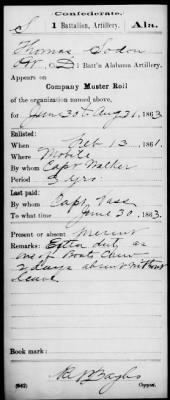 Confederate.
S | 1 Battalion, Artillery. | Ala.
Thomas Sodon
Co. D, 1 Batt'n Alabama Artillery.
Appears on
Company Muster Roll
of the organization named above,
for June 30 to Aug 31, 1863
Enlisted:
When Feb 13, 1861.
Where Mobile
By whom Capt Walker
Period 3 yrs.
Last paid:
By whom Capt Vass
To what time June 30, 1863.
Present or absent Present
Remarks: Extra duty as
one of Boats Crew
2 days absent without
leave.
Book mark:
(642) Copyist.